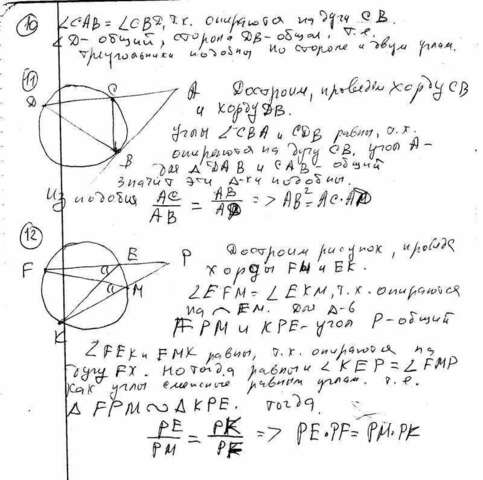 10 ∠CAB = ∠CBD, т.к. опираются на дугу CB.
∠D - общий, сторона DB - общая, т.е.
треугольники подобны по стороне и двум углам.
11
C
D
B
A
Достроим, проведём хорду CB
и хорду DB.
Углы ∠CBA и CDB равны, т.к.
опираются на дугу CB. угол A -
для △ DAB и CAB - общий
значит эти △-ки подобны.
Из подобия AC/AB = AB/AD => AB² = AC·AD
12
F
E
P
M
K
Достроим рисунок, проведя
хорды FM и EK.
∠EFM = ∠EKM, т.к. опираются
на ⌒EM. Для △-в
FPM и KPE - угол P - общий
∠FEK и FMK равны, т.к. опираются на
дугу FK. Но тогда равны и ∠KEP = ∠FMP
как углы смежные равным углам. т.е.
△ FPM ∾ △ KPE. тогда
PE/PM = PK/PF => PE·PF = PM·PK